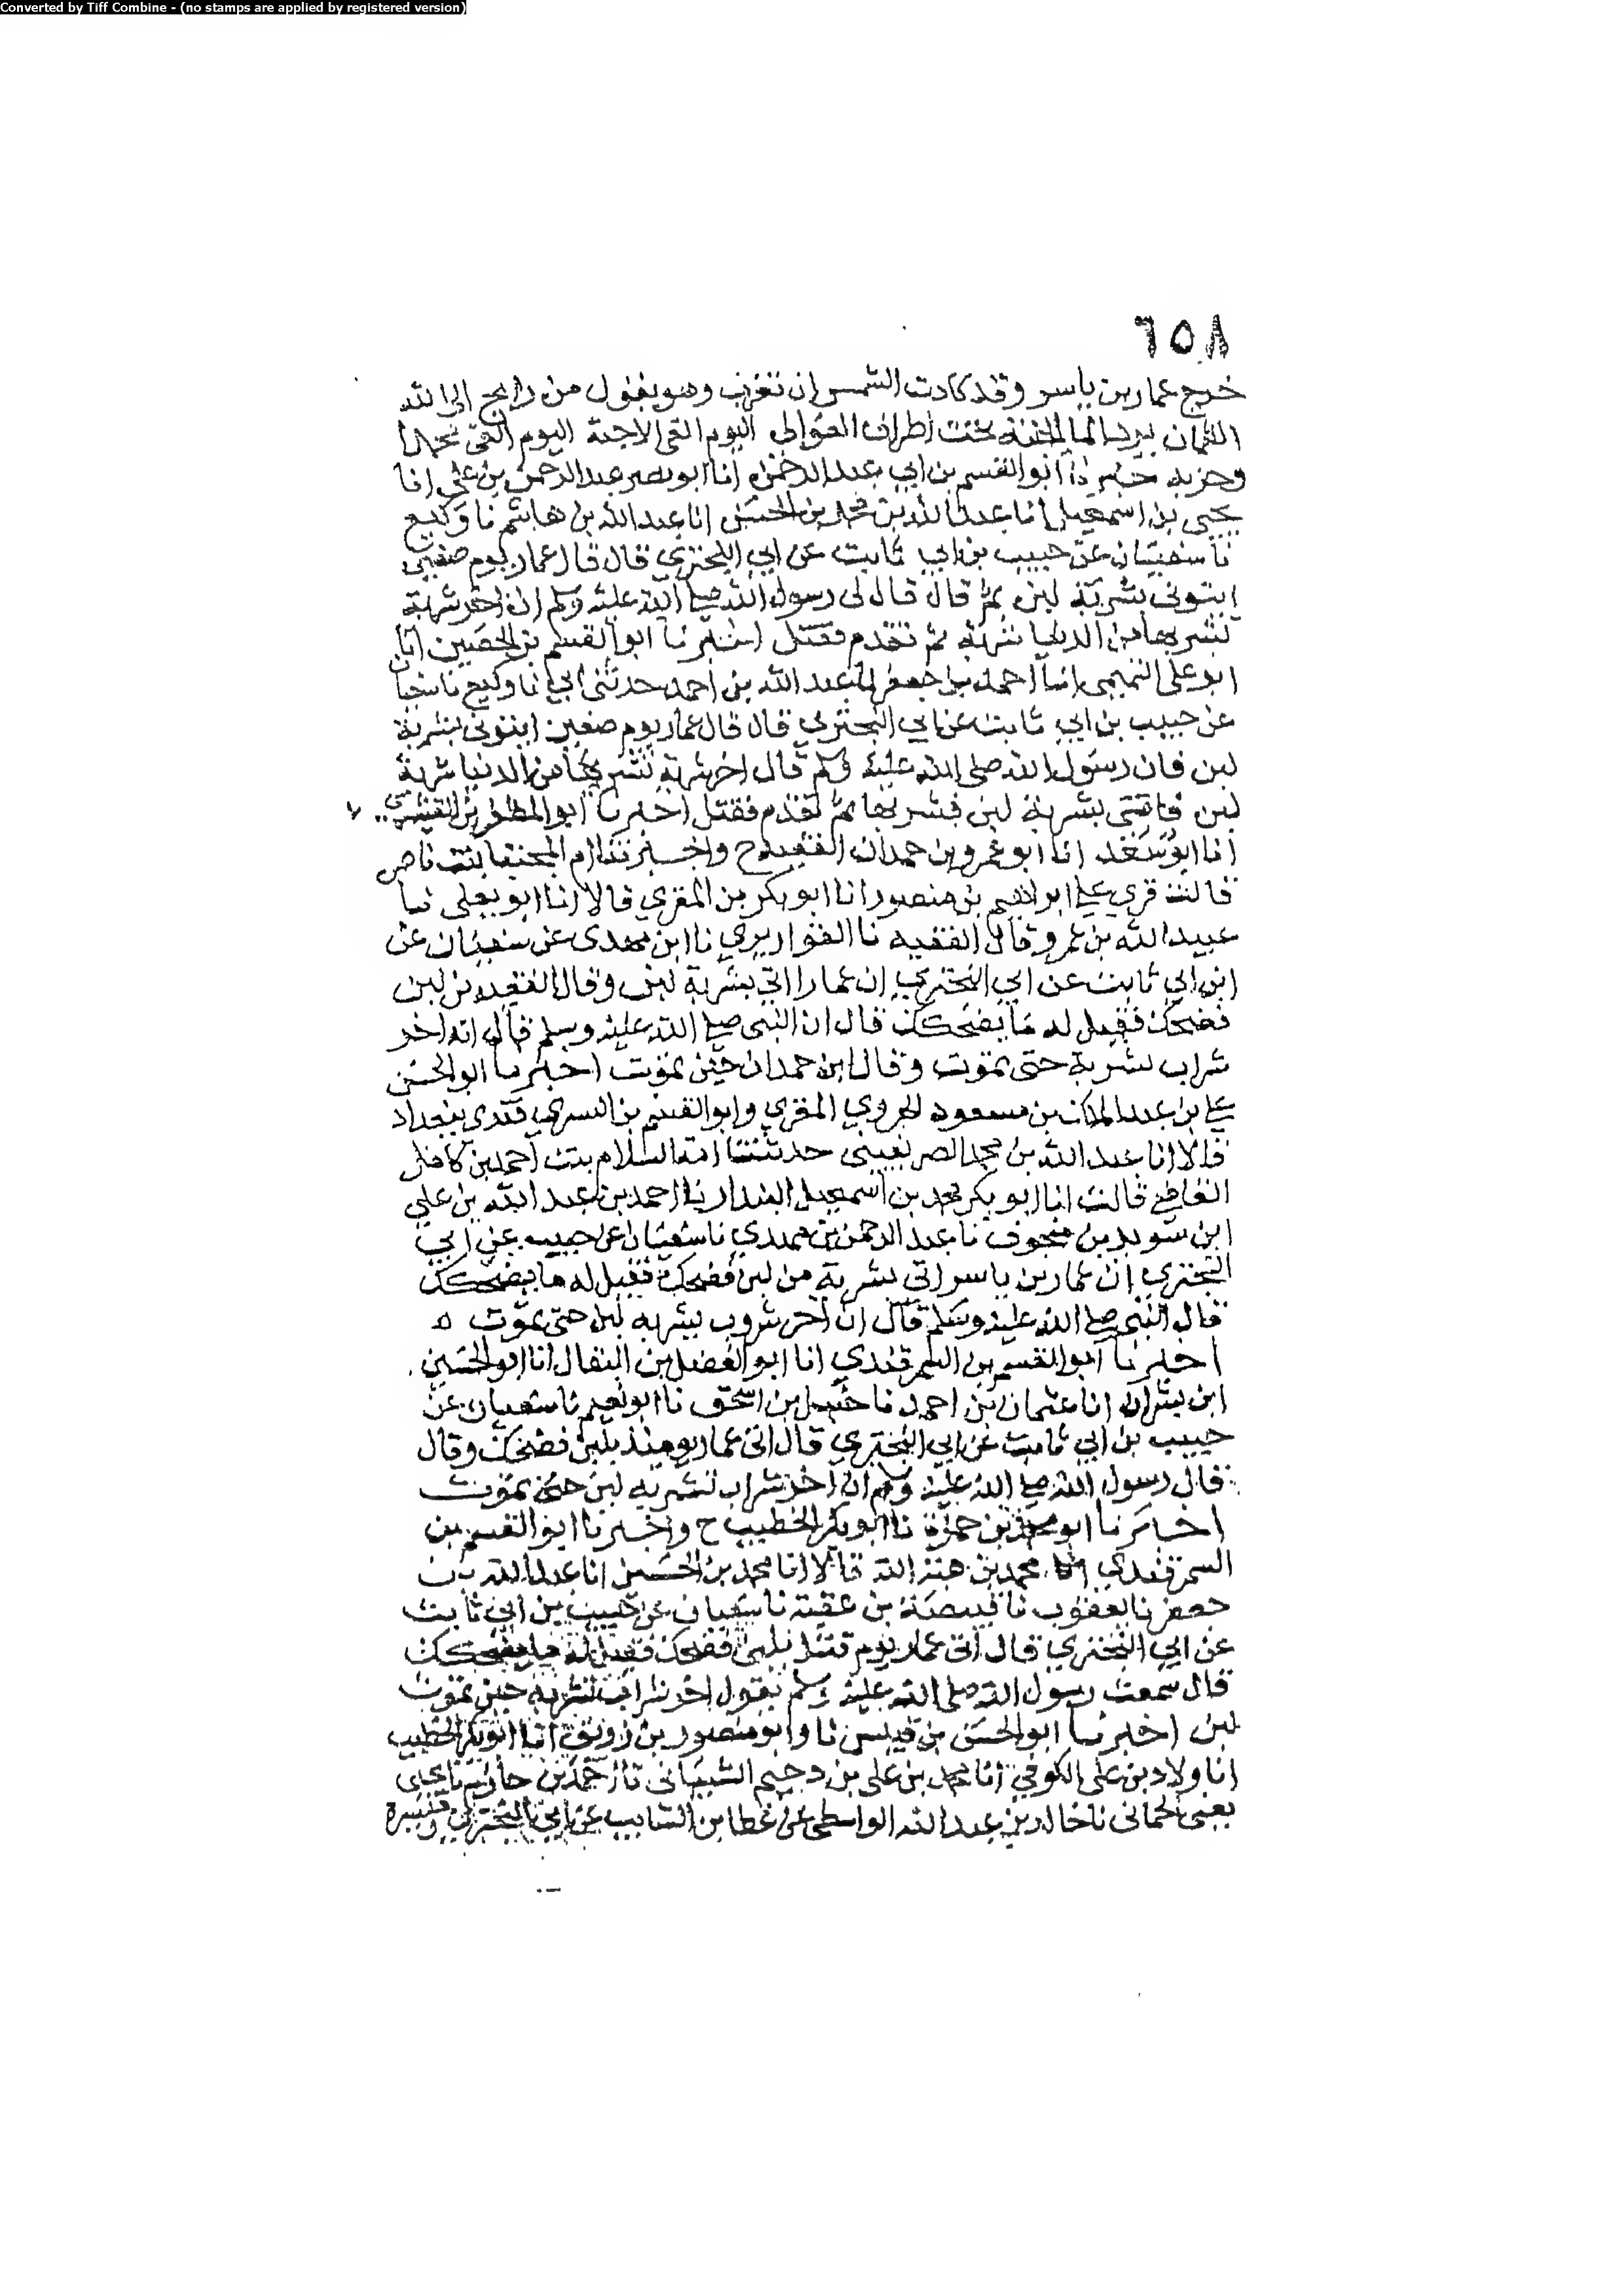 Converted by Tiff Combine - (no stamps are applied by registered version)
٦٥٨
خرج عمار بن ياسر وقد كادت الشمس ان تغرب وهو يقول من رايح الى الله
الظمآن يرد الما الجنة تحت اطراف العوالي اليوم القى الاحبة اليوم القى محمدا
وحزبه اخبرنا ابو القسم بن ابي عبد الرحمن انا ابو نصر عبد الرحمن بن علي انا
يحيى بن اسمعيل انا عبد الله بن محمد بن الحسن انا عبد الله بن هاشم نا وكيع
نا سفيان عن حبيب بن ابي ثابت عن ابي البختري قال قال عمار يوم صفين
ايتوني بشربة لبن ثم قال قال لى رسول الله صلى الله عليه وسلم ان اخر شربة
تشربها من الدنيا شربة ثم تقدم فقتل اخبرنا ابو القسم بن الحصين انا
ابو على التميمي انا احمد بن جعفر نا عبد الله بن احمد حدثني ابي نا وكيع نا سفيان
عن حبيب بن ابي ثابت عن ابي البختري قال قال عمار يوم صفين ايتوني بشربة
لبن فان رسول الله صلى الله عليه وسلم قال اخر شربة تشربها من الدنيا شربة
لبن فاتى بشربة لبن فشربها ثم تقدم فقتل اخبرنا ابو المظفر بن القشيري
انا ابو سعد انا ابو عمرو بن حمدان الفقيه ح واخبرتنا ام المجتبا بنت ناصر
قالت قري على ابراهيم بن منصور انا ابو بكر بن المقري قالا انا ابو يعلى نا
عبيد الله بن عمر وقال الفقيه نا القواريري نا ابن مهدى عن سفيان عن
ابن ابي ثابت عن ابي البختري ان عمارا اتي بشربة لبن وقال الفقيه من لبن
فضحك فقيل له ما يضحكك قال ان النبى صلى الله عليه وسلم قال انه اخر
شراب نشربه حتى تموت وقال ابن حمدان حين تموت اخبرنا ابو الحسن
علي بن عبد الملك بن مسعود الهروي المقري وابو القسم بن السمرقندى ببغداد
قالا انا عبد الله بن محمد الصريفيني حدثتنا امة السلام بنت احمد بن كامل
القاضي قالت انا ابو بكر محمد بن اسمعيل البندار نا احمد بن عبد الله بن علي
ابن سويد بن منجوف نا عبد الرحمن بن مهدي نا سفيان عن حبيب عن ابي
البختري ان عمار بن ياسر اتي بشربة من لبن فضحك فقيل له ما يضحكك
قال النبى صلى الله عليه وسلم قال ان اخر شروب يشربه لبن حتى تموت ه
اخبرنا ابو القسم بن السمرقندي انا ابو الفضل بن البقال انا ابو الحسين
ابن بشران انا عثمان بن احمد نا حنبل بن اسحق نا ابو نعيم نا سفيان عن
حبيب بن ابي ثابت عن ابي البختري قال اتى عمار يومئذ بلبن فضحك وقال
قال رسول الله صلى الله عليه وسلم ان اخر شراب تشربه لبن حتى تموت
اخبرنا ابو محمد بن حمزة نا ابو بكر الخطيب ح واخبرنا ابو القسم بن
السمرقندي انا محمد بن هبة الله قالا انا محمد بن الحسين انا عبد الله بن
جعفر نا يعقوب نا قبيصة بن عقبة نا سفيان عن حبيب بن ابي ثابت
عن ابي البختري قال اتى عمار يوم قتل بلبن فضحك فقيل له ما يضحكك
قال سمعت رسول الله صلى الله عليه وسلم يقول اخر شراب تشربه حين تموت
لبن اخبرنا ابو الحسن بن قبيس نا وابو منصور بن زريق انا ابو بكر الخطيب
انا ولاد بن على الكوفي انا محمد بن على بن دحيم الشيباني نا احمد بن حازم نا يحيى
يعنى الحماني نا خالد بن عبد الله الواسطي عن عطا بن السايب عن ابي البختري وميسرة